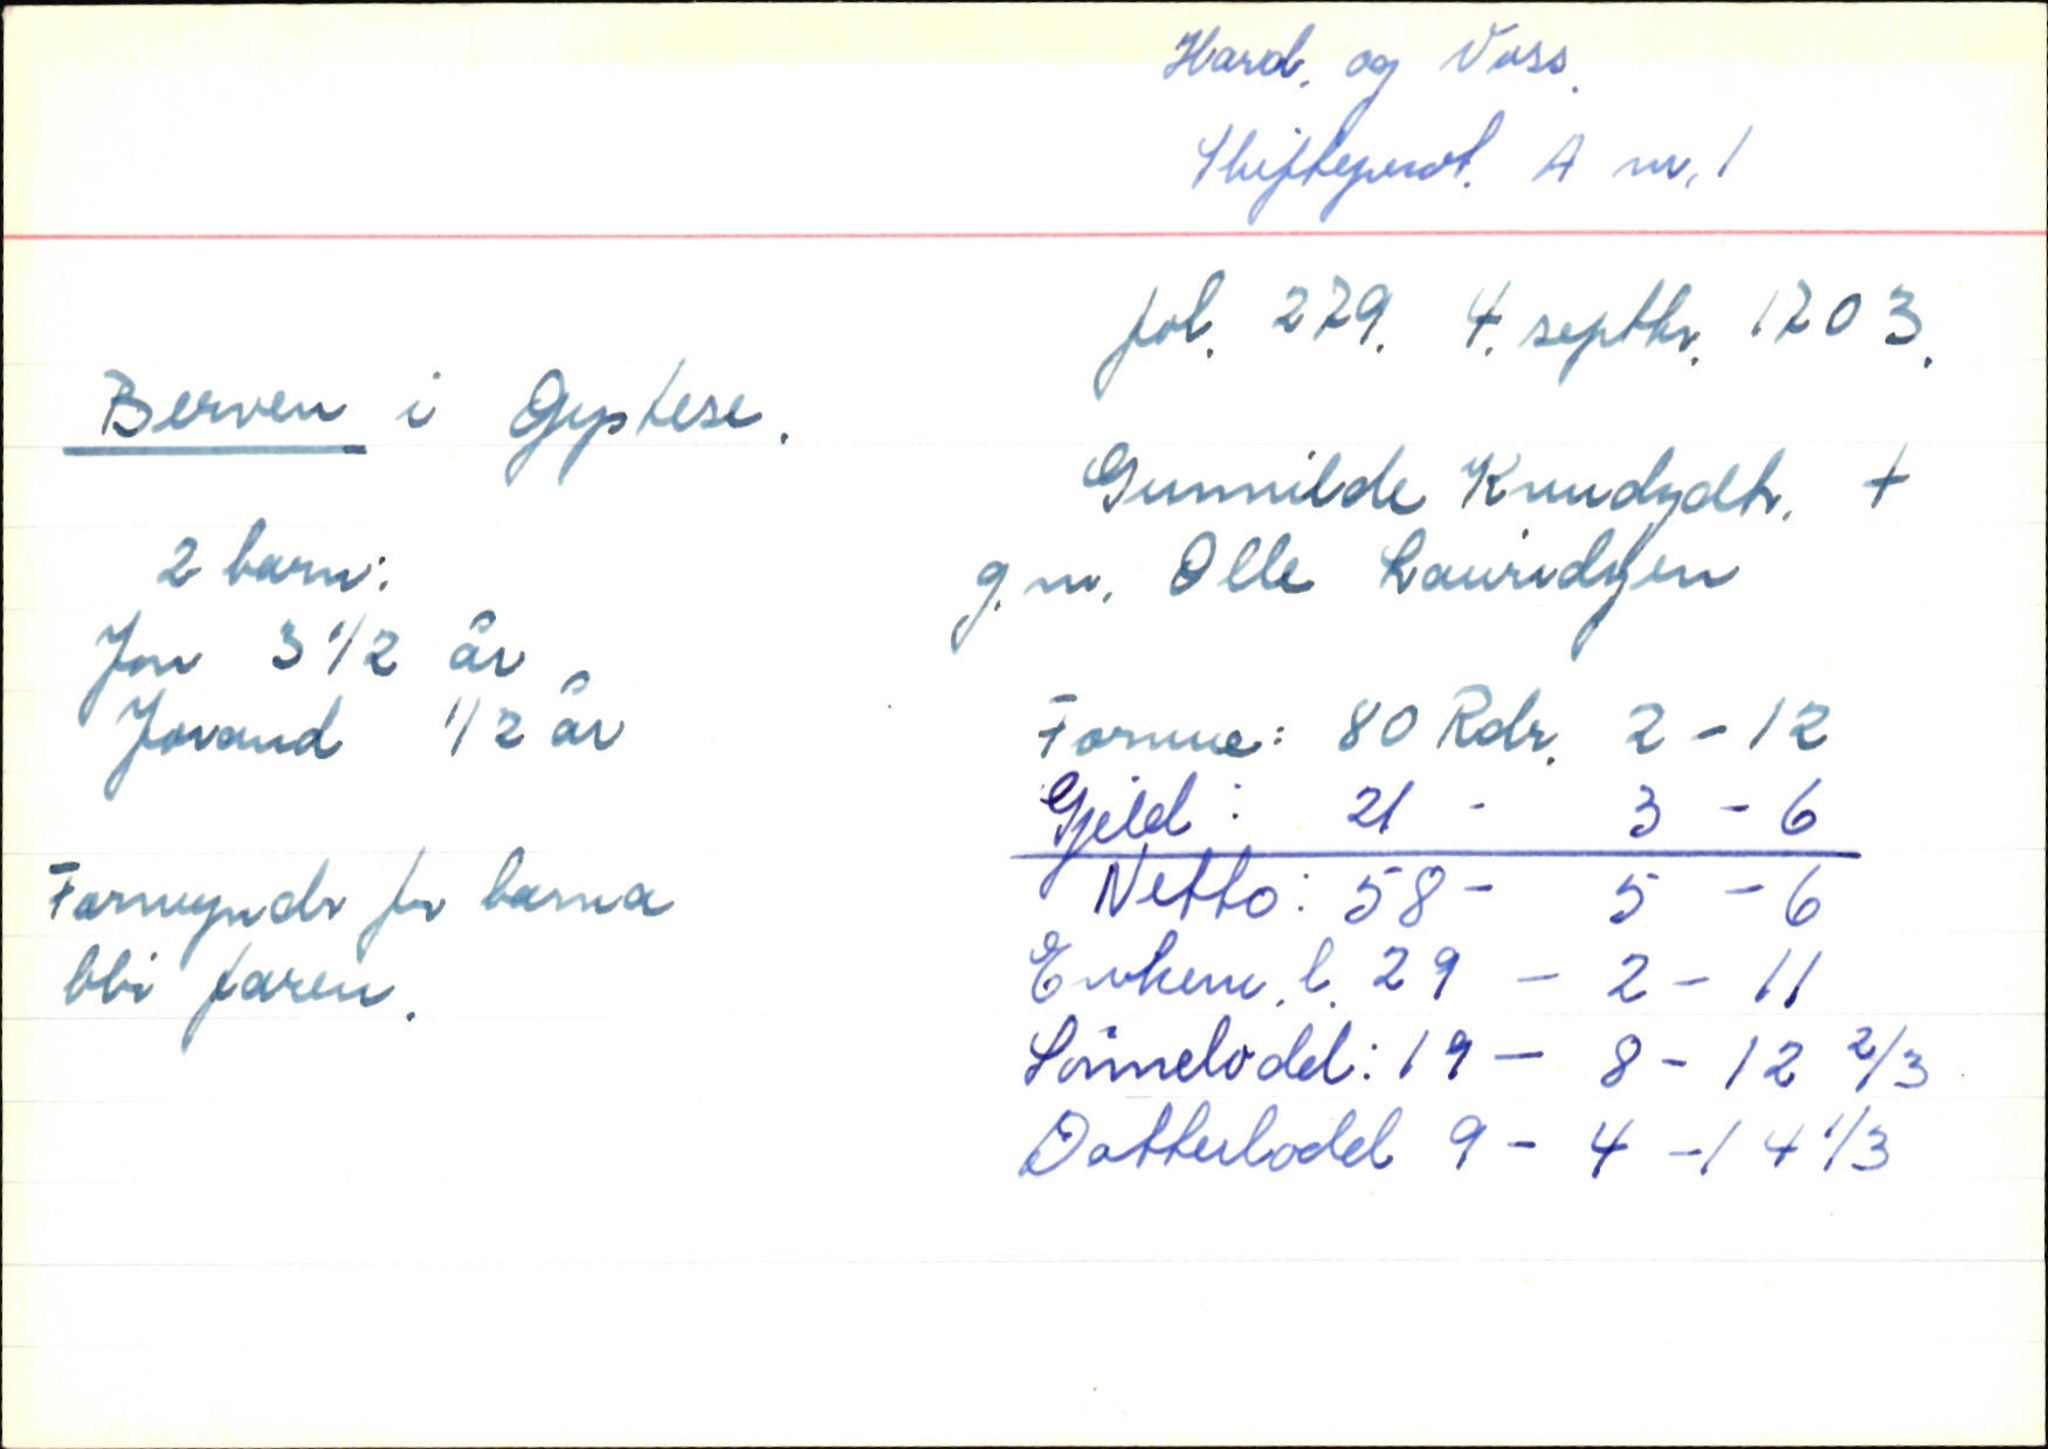 Hard. og Voss.
Skifteprot. A nr. 1
fol. 279. 4. septbr. 1703.
Berven i Gyptese.
Gunnilde Knudzdtr. +
g.m. Olle Lauridzen
2 barn:
Jon 3 1/2 år
Jorand 1/2 år
Formue: 80 Rdr. 2 - 12
Gjeld: 21 - 3 - 6
Netto: 58 - 5 - 6
Enkem. l. 29 - 2 - 11
Sönnelodd: 19 - 8 - 12 2/3
Datterlodd 9 - 4 - 14 1/3
Formyndr for barna
bli faren.